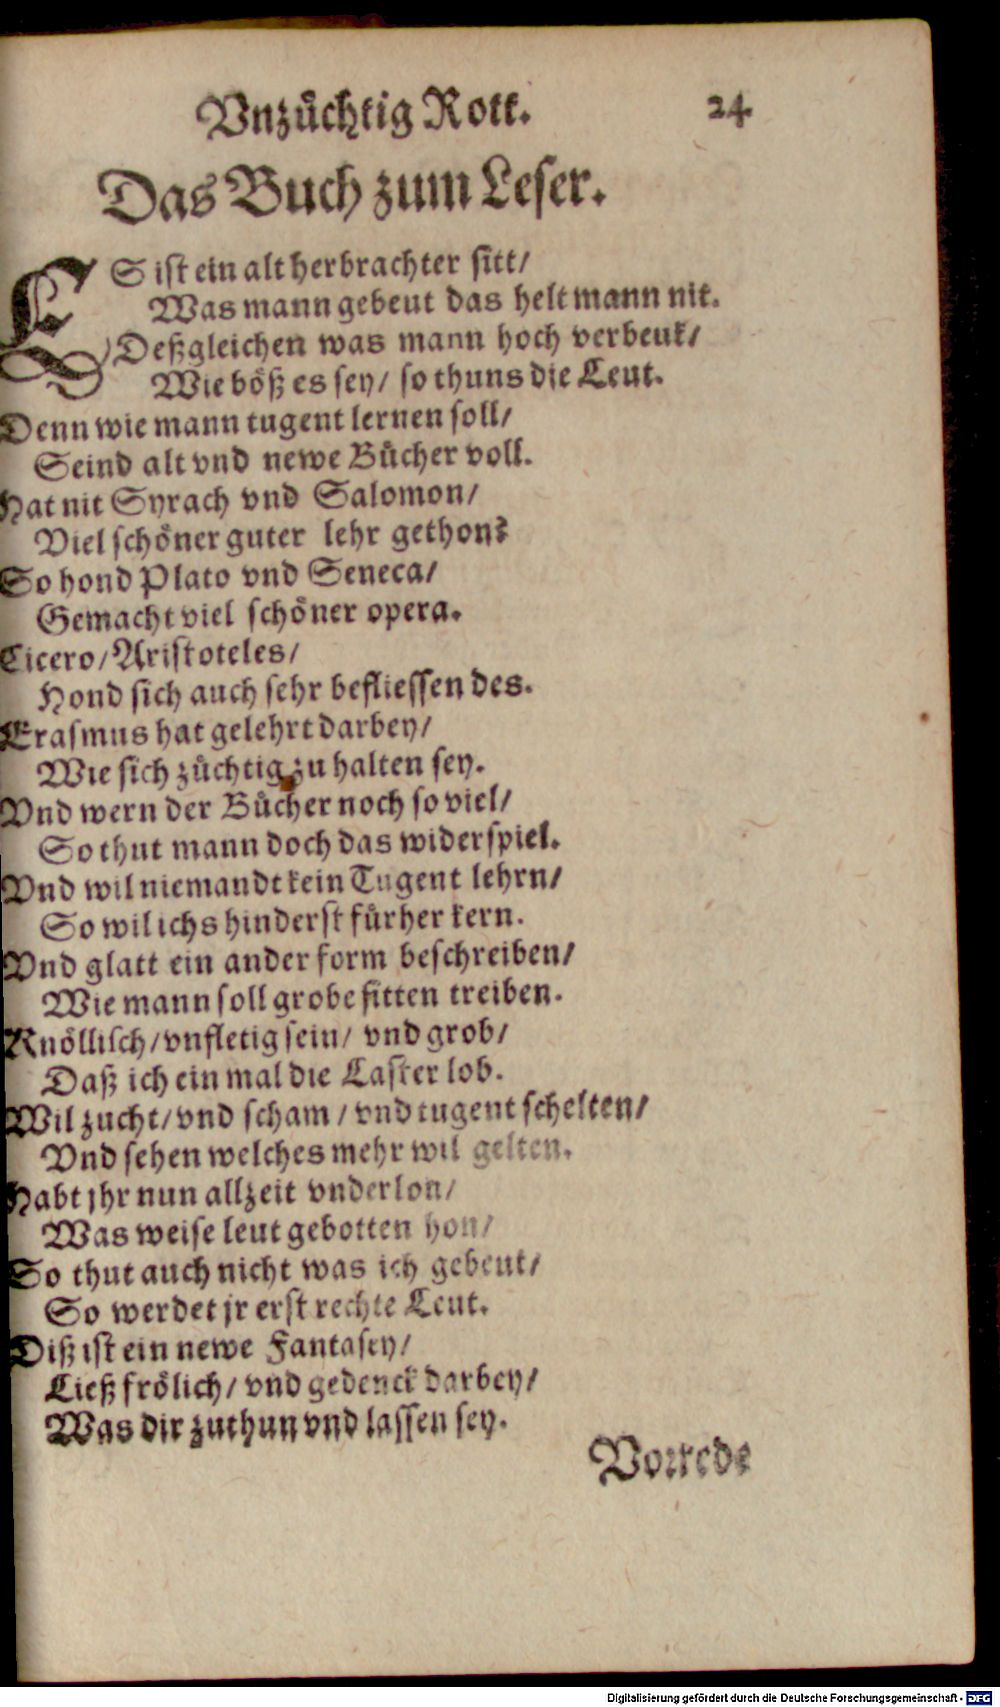 Vnzüchtig Rott. 24
Das Buch zum Leser.
ES ist ein alt herbrachter sitt/
Was mann gebeut das helt mann nit.
Deßgleichen was mann hoch verbeut/
Wie böß es sey/ so thuns die Leut.
Denn wie mann tugent lernen soll/
Seind alt vnd newe Bücher voll.
Hat nit Syrach vnd Salomon/
Viel schöner guter lehr gethon?
So hond Plato vnd Seneca/
Gemacht viel schöner opera.
Cicero/ Aristoteles/
Hond sich auch sehr befliessen des.
Erasmus hat gelehrt darbey/
Wie sich züchtig zu halten sey.
Vnd wern der Bücher noch so viel/
So thut mann doch das widerspiel.
Vnd wil niemandt kein Tugent lehrn/
So wil ichs hinderst fürher kern.
Vnd glatt ein ander form beschreiben/
Wie mann soll grobe sitten treiben.
Knöllisch/ vnfletig sein/ vnd grob/
Daß ich ein mal die Laster lob.
Wil zucht/ vnd scham/ vnd tugent schelten/
Vnd sehen welches mehr wil gelten.
Habt jhr nun allzeit vnderlon/
Was weise leut gebotten hon/
So thut auch nicht was ich gebeut/
So werdet jr erst rechte Leut.
Diß ist ein newe Fantasey/
Ließ frölich/ vnd gedenck darbey/
Was dir zuthun vnd lassen sey.
Vorrede
Digitalisierung gefördert durch die Deutsche Forschungsgemeinschaft - DFG